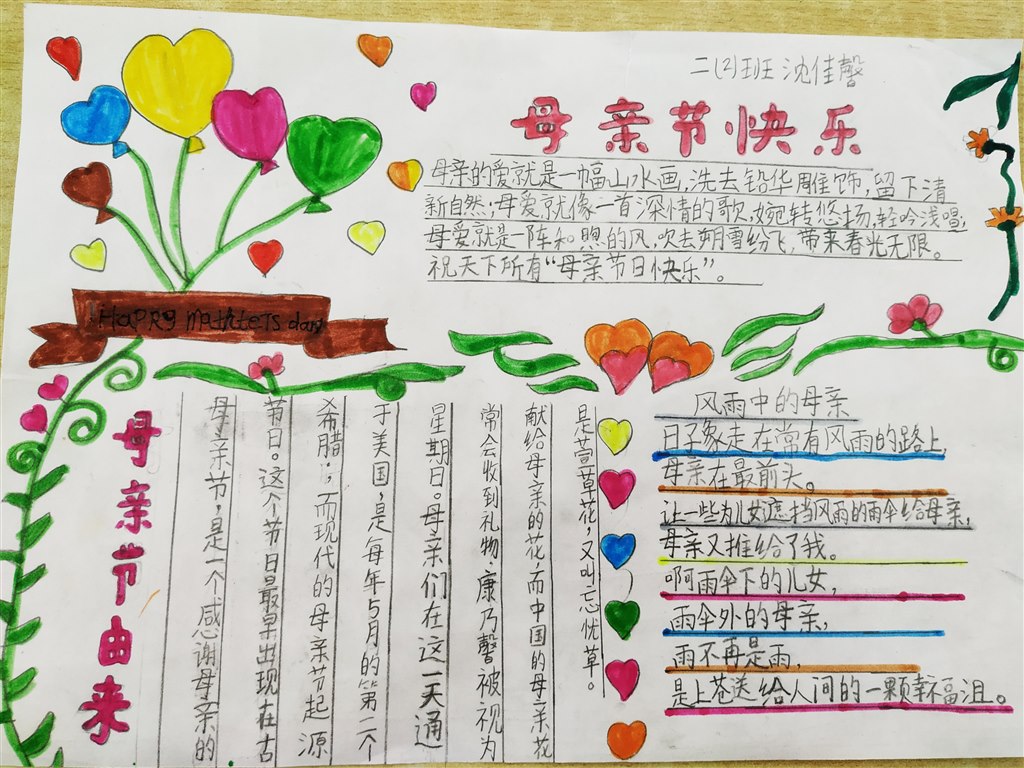 二(2)班 沈佳馨
母亲节快乐
母亲的爱就是一幅山水画,洗去铅华雕饰,留下清
新自然;母爱就像一首深情的歌,婉转悠扬,轻吟浅唱;
母爱就是一阵和煦的风,吹去朔雪纷飞,带来春光无限。
祝天下所有“母亲节日快乐”。
HaPRy mathteTs day
母亲节由来
母亲节,是一个感谢母亲的
节日。这个节日最早出现在古
希腊;而现代的母亲节起源
于美国,是每年5月的第二个
星期日。母亲们在这一天通
常会收到礼物,康乃馨被视为
献给母亲的花,而中国的母亲花
是萱草花,又叫忘忧草。
风雨中的母亲
日子象走在常有风雨的路上,
母亲在最前头。
让一些为儿女遮挡风雨的雨伞给母亲,
母亲又推给了我。
啊雨伞下的儿女,
雨伞外的母亲,
雨不再是雨,
是上苍送给人间的一颗幸福沮。